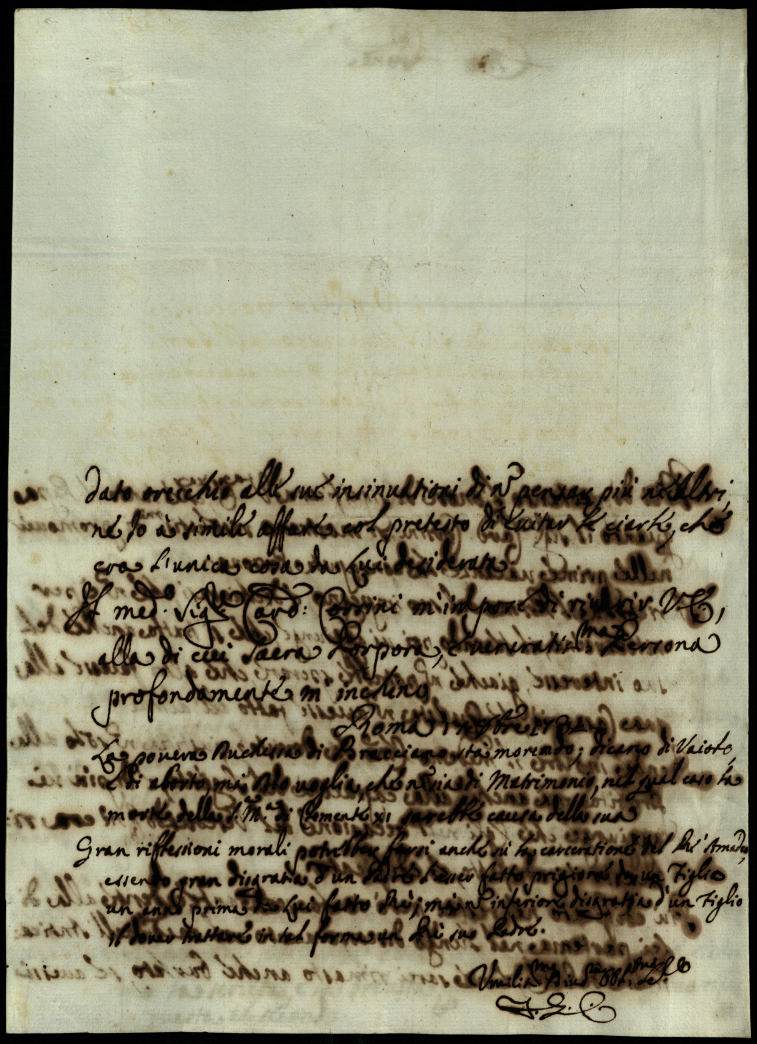 dato orecchio alle sue insinuationi di nō pensar più nè altri,
nè Io à simile affare col pretesto di evitar le ciarle, che
era l'unica cosa da Lui desiderata.
Il med.º Sig.r Card: Corsini m'impone di riverir V.E.,
alla di cui Sacra Porpora, e veneratis.ma Persona
profondamente m'inchino
Roma 9bre
La povera Duchessa di Bracciano stà morendo; dicono di Vaiolo,
e di aborto, mà Dio voglia, che nō sia di Matrimonio, nel qual caso la
morte della S. M.a di Clemente XI sarebbe causa della sua
Gran riflessioni morali potrebber farsi anche sù la carceratione del Rè Amadeo,
essendo gran disgratia d'un Padre l'esser fatto prigione da un Figlio
un anno prima da Lui fatto Rè; mà nō inferiore disgratia d'un Figlio
il dover trattare in tal forma un Rè suo Padre.
Umilis.mo Div.mo Obb.mo